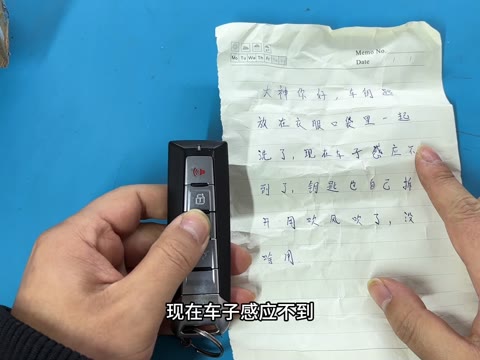 Memo No.
Mo Tu We Th Fr Sa Su
Date
大神你好，车钥匙
放在衣服口袋里一起
洗了，现在车子感应不
到了，钥匙也自己拆
开用吹风吹了，没
啥用
现在车子感应不到